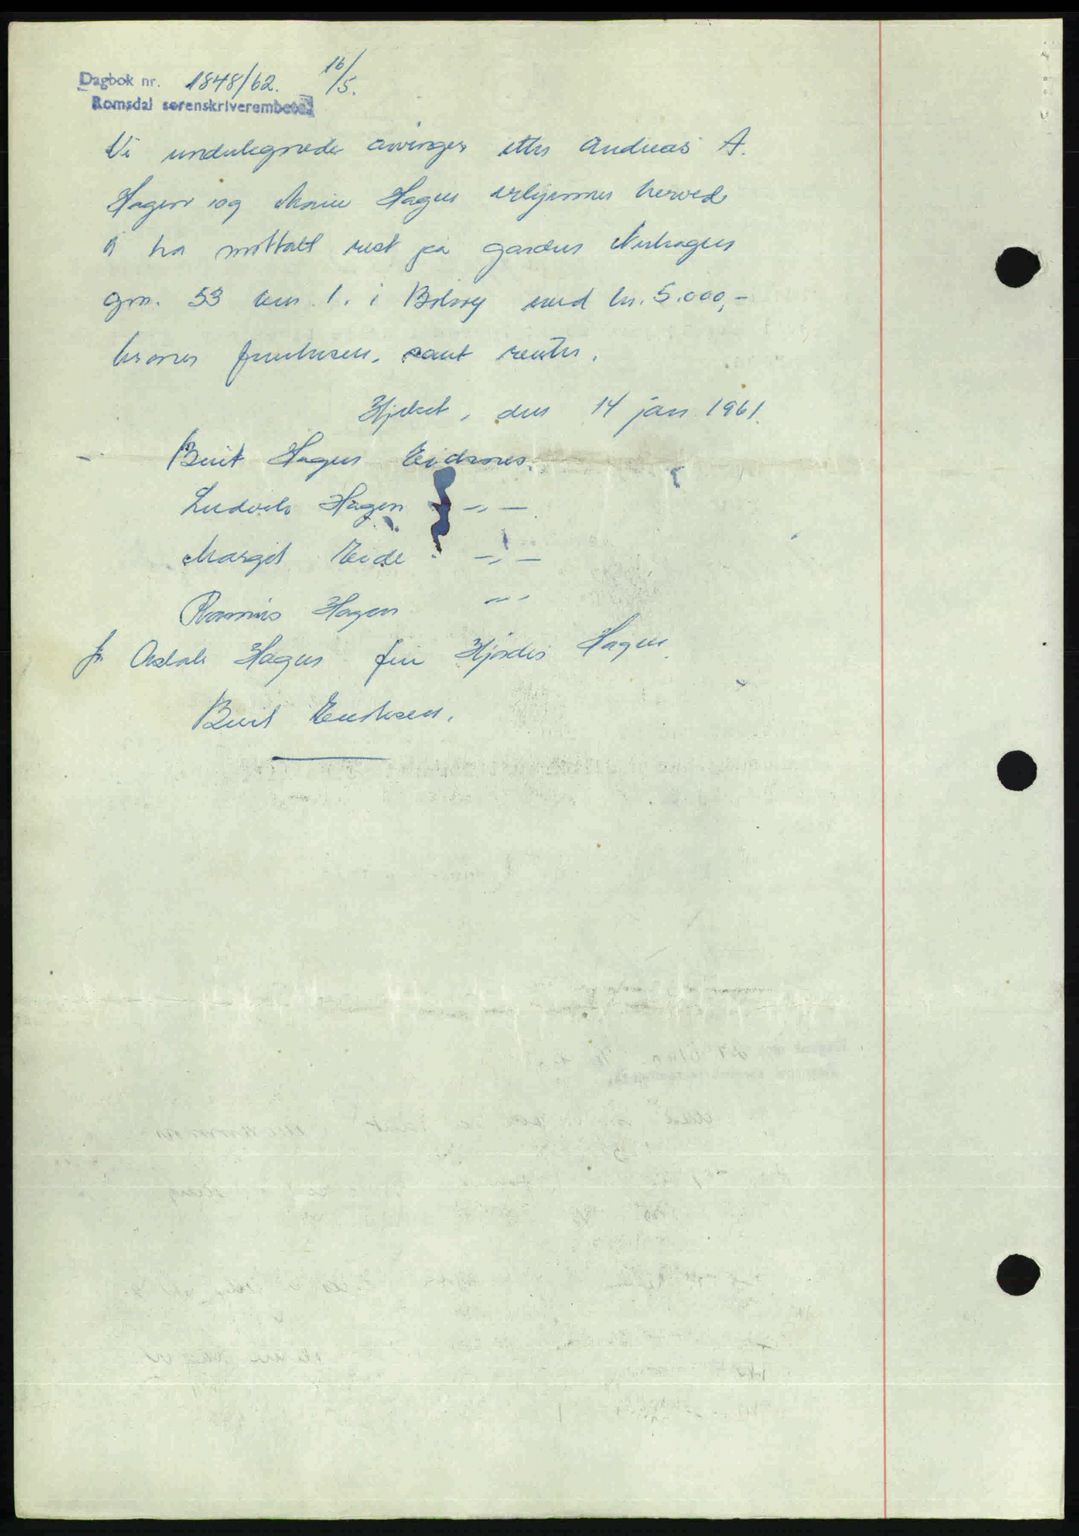 Dagbok nr. 1848/62. 16/5.
Romsdal sorenskriverembete
Vi undertegnede arvinger etter Andreas A.
Hagen og Marie Hagen erkjenner herved
å ha mottatt rest på garden Nerhagen
gnr. 53 bnr. 1. i Bolsøy med kr. 5.000,-
kroner femtusen, samt renter.
Hjelset, den 14 jan 1961.
Berit Hagen Eidsnes.
Ludvik Hagen -"-
Margit Eide -"-
Hagen -"-
Hagen for Hjørdis Hagen
Berit